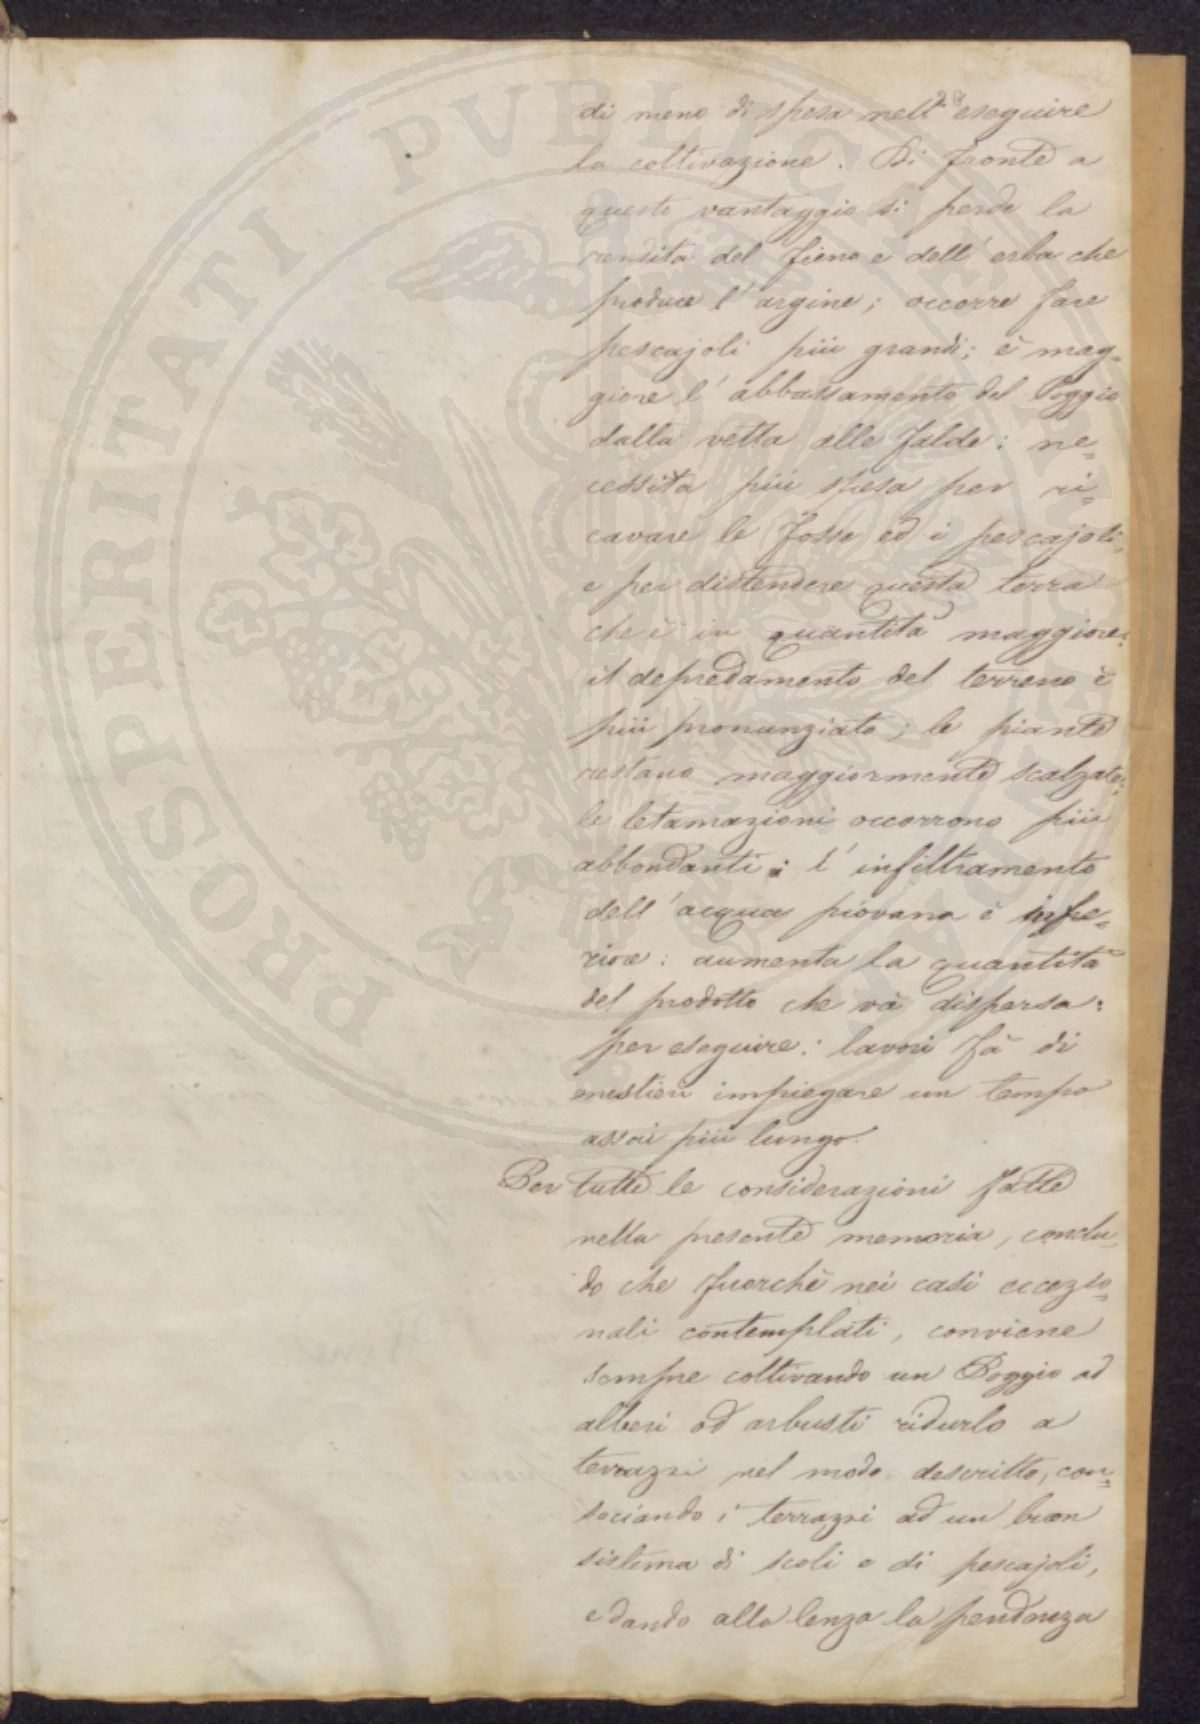 di meno di spesa nell' eseguire
la coltivazione. Di fronte a
questo vantaggio si perde la
rendita del fieno e dell' erba che
produce l' argine; occorre fare
pescajoli più grandi; è mag=
giore l' abbassamento del Poggio
dalla vetta alle falde: ne=
cessita più spesa per ri=
cavare le fosse ed i pescajoli,
e per distendere questa terra
che è in quantità maggiore:
il depredamento del terreno è
più pronunziato; le piante
restano maggiormente scalzate:
le letamazioni occorrono più
abbondanti: l' infiltramento
dell' acqua piovana è infe=
riore: aumenta la quantità
del prodotto che và dispersa:
per eseguire i lavori fà di
mestieri impiegare un tempo
assai più lungo.
Per tutte le considerazioni fatte
nella presente memoria, conclu=
do che fuorchè nei casi eccezio=
nali contemplati, conviene
sempre coltivando un Poggio ad
alberi od arbusti ridurlo a
terrazzi nel modo descritto, con=
sociando i terrazzi ad un buon
sistema di scoli e di pescajoli,
e dando alla lenza la pendenza
PROSPERITATI PUBLICAE